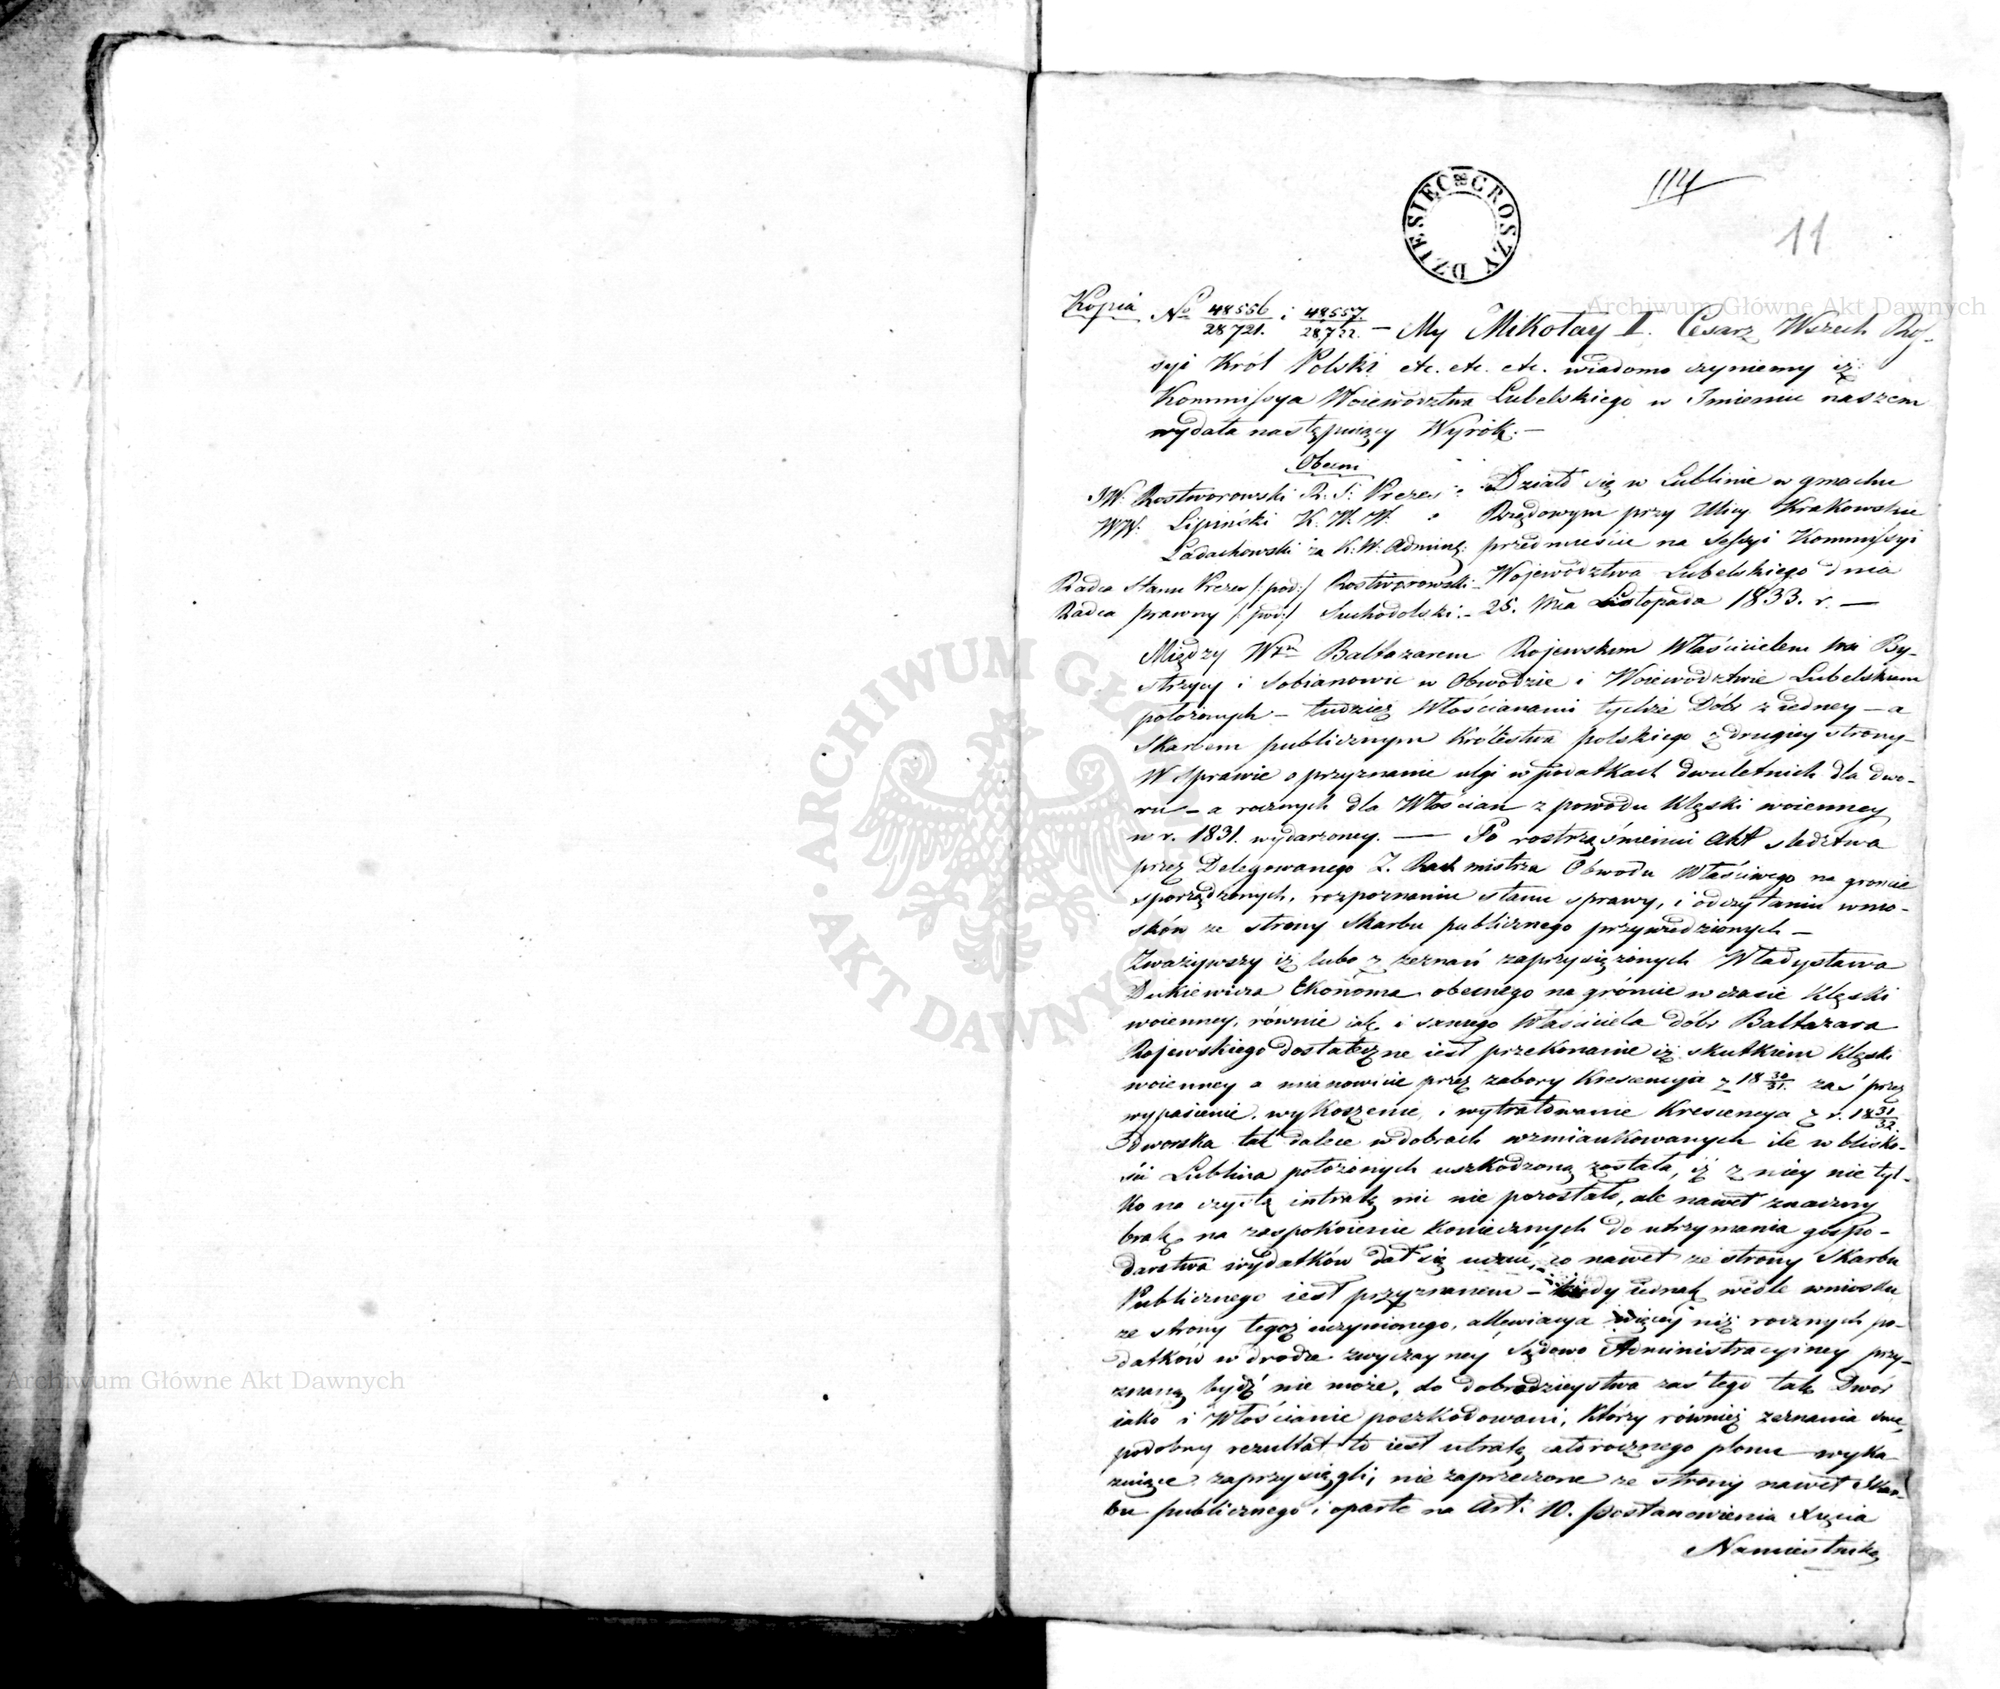 114
11
DZIESIĘĆ GROSZY
Kopia № 48556/28721. i 48557./28722. — My Mikołay I. Cesarz Wszech Ros-
syi Król Polski etc. etc. etc. wiadomo czyniemy iż
Kommissya Województwa Lubelskiego w Imieniu naszem
wydała następuiący Wyrok. —
Obecni
JW. Rostworowski R. S. Prezes
WW. Lipiński K. W. W.
Ladachowski za K. W. Admin:
Radca Stanu Prezes /: pod:/ Rostworowski —
Radca prawny /: pod:/ Suchodolski. —
Działo się w Lublinie w gmachu
Rządowym przy Ulicy Krakowskie
przedmieście na Sessyi Kommissyi
Województwa Lubelskiego dnia
25. Mca Listopada 1833. r. —
Między Baltazarem Rojewskim Właścicielem By-
strzycy i Sobianowic w Obwodzie i Woiewództwie Lubelskim
położonych — tudzież Włościanami tychże Dóbr z iedney — a
Skarbem publicznym Królestwa Polskiego z drugiey strony —
W Sprawie o przyznanie ulgi w podatkach dwuletnich dla dwo-
ru — a rocznych dla Włościan z powodu Klęski woienney
w r. 1831. wydarzoney. — Po roztrząśnieniu Akt śledztwa
przez Delegowanego Z. Rachmistrza Obwodu Właściwego na groncie
sporządzonych, rozpoznaniu stanu sprawy, i odczytaniu wnio-
sków ze strony Skarbu publicznego przywiedzionych —
Zważywszy iż lubo z zeznań zaprzysiężonych Władysława
Dukiewicza Ekonoma obecnego na groncie w czasie Klęski
woienney, równie iak i samego Właściciela dóbr Baltazara
Rojewskiego dostateczne iest przekonanie iż skutkiem Klęski
woienney a mianowicie przez zabory Krescencyia z 18 30/31. zaś przez
wypasienie, wykoszenie, i wytratowanie Krescencya z r. 18 31/32
Dworska tak dalece w dobrach wzmiankowanych ile w blisko-
ści Lublina położonych uszkodzoną została, iż z niey nie tyl-
ko na czystą intratę nic nie pozostało, ale nawet znaczny
brak na zaspokoienie koniecznych do utrzymania gospo-
darstwa wydatków dał się uczuć, co nawet ze strony Skarbu
Publicznego iest przyznanem — kiedy iednak wedle wniosku
ze strony tegoż uczynionego, allewiacya więcey niż rocznych po-
datków w drodze zwyczayney Sądowo Administracyiney przy-
znaną bydź nie może, do dobrodzieystwa zaś tego tak Dwór
iako i Włościanie poszkodowani, którzy również zeznania swe,
podobny rezultat to iest utratę całorocznego plonu wyka-
zuiące zaprzysięgli, nie zaprzeczone ze strony nawet Skar-
bu publicznego i oparte na Art. 10. Postanowienia Xięcia
Namiestnika
Archiwum Główne Akt Dawnych
Archiwum Główne Akt Dawnych
ARCHIWUM GŁÓWNE AKT DAWNYCH